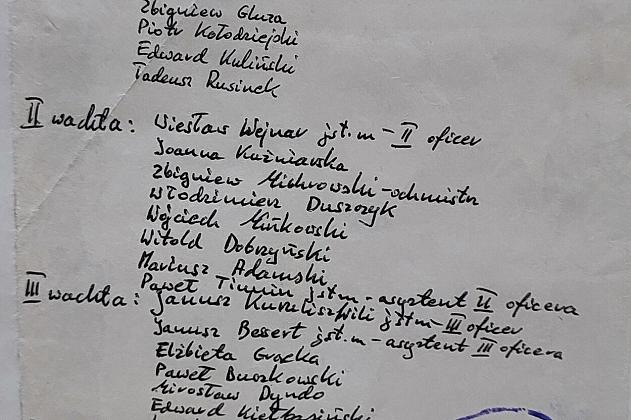 Zbigniew Gluza
Piotr Kołodziejski
Edward Kuliński
Tadeusz Rusinek
II wachta: Wiesław Wejnar jst.m - II oficer
Joanna Kuźniarska
Zbigniew Michrowski - ochmistrz
Włodzimierz Duszczyk
Wojciech Mińkowski
Witold Dobrzyński
Mariusz Adamski
Paweł jst.m - asystent II oficera
III wachta: Janusz jst.m - III oficer
Janusz Bessert jst.m - asystent III oficera
Elżbieta Grocka
Paweł Buszkowski
Mirosław Dyndo
Edward